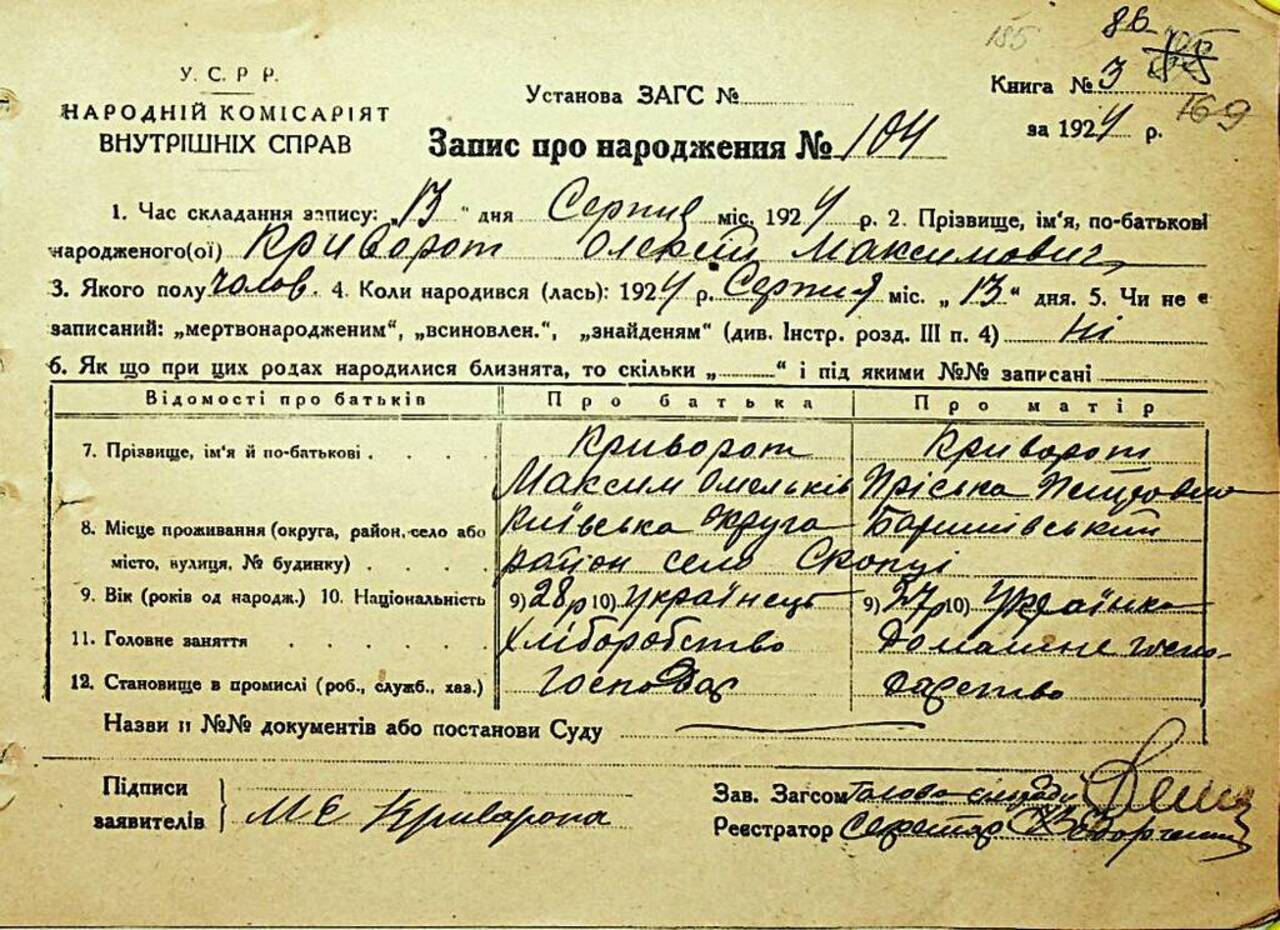 185 86
У. С. Р Р.
НАРОДНІЙ КОМІСАРІЯТ
ВНУТРІШНІХ СПРАВ
Установа ЗАГС №
Запис про народження № 104
Книга № 3
за 1924 р. 169
1. Час складання запису: „13" дня Серпня міс. 1924 р. 2. Прізвище, ім'я, по-батькові
народженого(ої) Криворот Олексій Максимович
3. Якого полу чолов. 4. Коли народився (лась): 1924 р. Серпня міс. „13" дня. 5. Чи не є
записаний: „мертвонародженим", „всиновлен.", „знайденям" (див. Інстр. розд. III п. 4) Ні
6. Як що при цих родах народилися близнята, то скільки „ " і під якими №№ записані
Відомості про батьків Про батька Про матір
7. Прізвище, ім'я й по-батькові . . . . Криворот Криворот
Максим Омельків Пріська Петровна
8. Місце проживання (округа, район, село або Київська округа Баришівський
місто, вулиця, № будинку) . . . . район село Скопці
9. Вік (років од народж.) 10. Національність 9) 28 р 10) українець 9) 27 р 10) українка
11. Головне заняття . . . . . . Хліборобство Домашнє госпо-
12. Становище в промислі (роб., служб., хаз.) Господар дарство
Назви и №№ документів або постанови Суду
Підписи
заявителів М Є Криварота
Зав. Загсом Голова сільради
Реєстратор Секретар